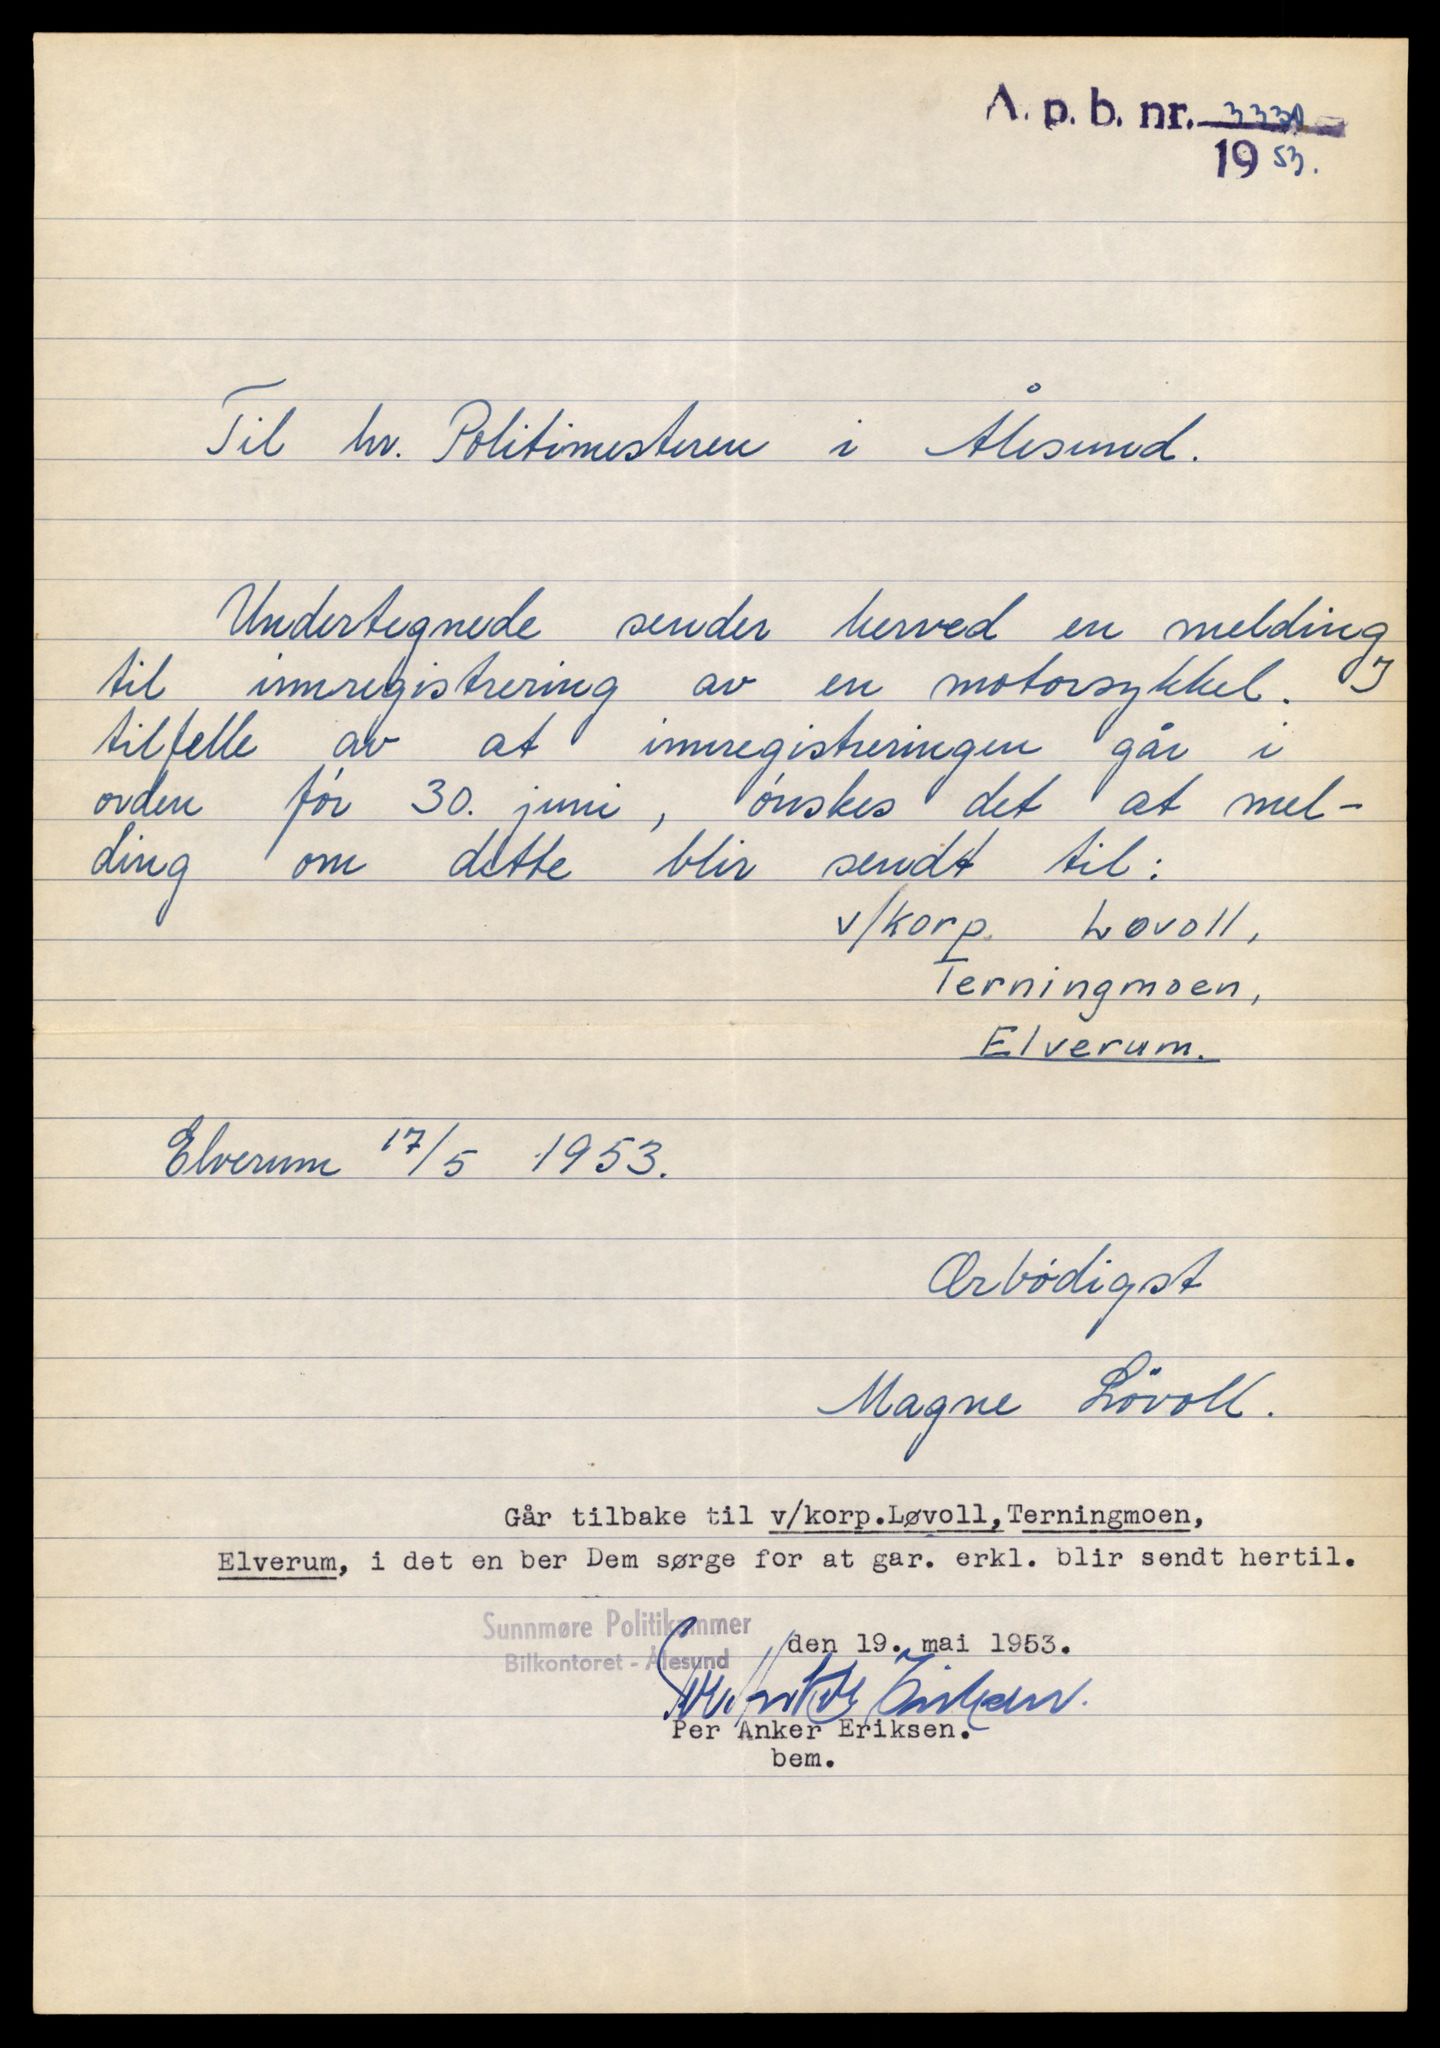 A. p. b. nr.
19 53.
Til hr. Politimesteren i Ålesund.
Undertegnede sender herved en melding
til innregistrering av en motorsykkel. I
tilfelle av at innregistreringen går i
orden før 30. juni, ønskes det at mel-
ding om dette blir sendt til:
v/korp. Løvoll,
Terningmoen,
Elverum.
Elverum 17/5 1953.
Ærbødigst
Magne Løvoll.
Går tilbake til v/korp.Løvoll,Terningmoen,
Elverum, i det en ber Dem sørge for at gar. erkl. blir sendt hertil.
Sunnmøre Politikammer
Bilkontoret - Ålesund
den 19. mai 1953.
Per Anker Eriksen.
bem.